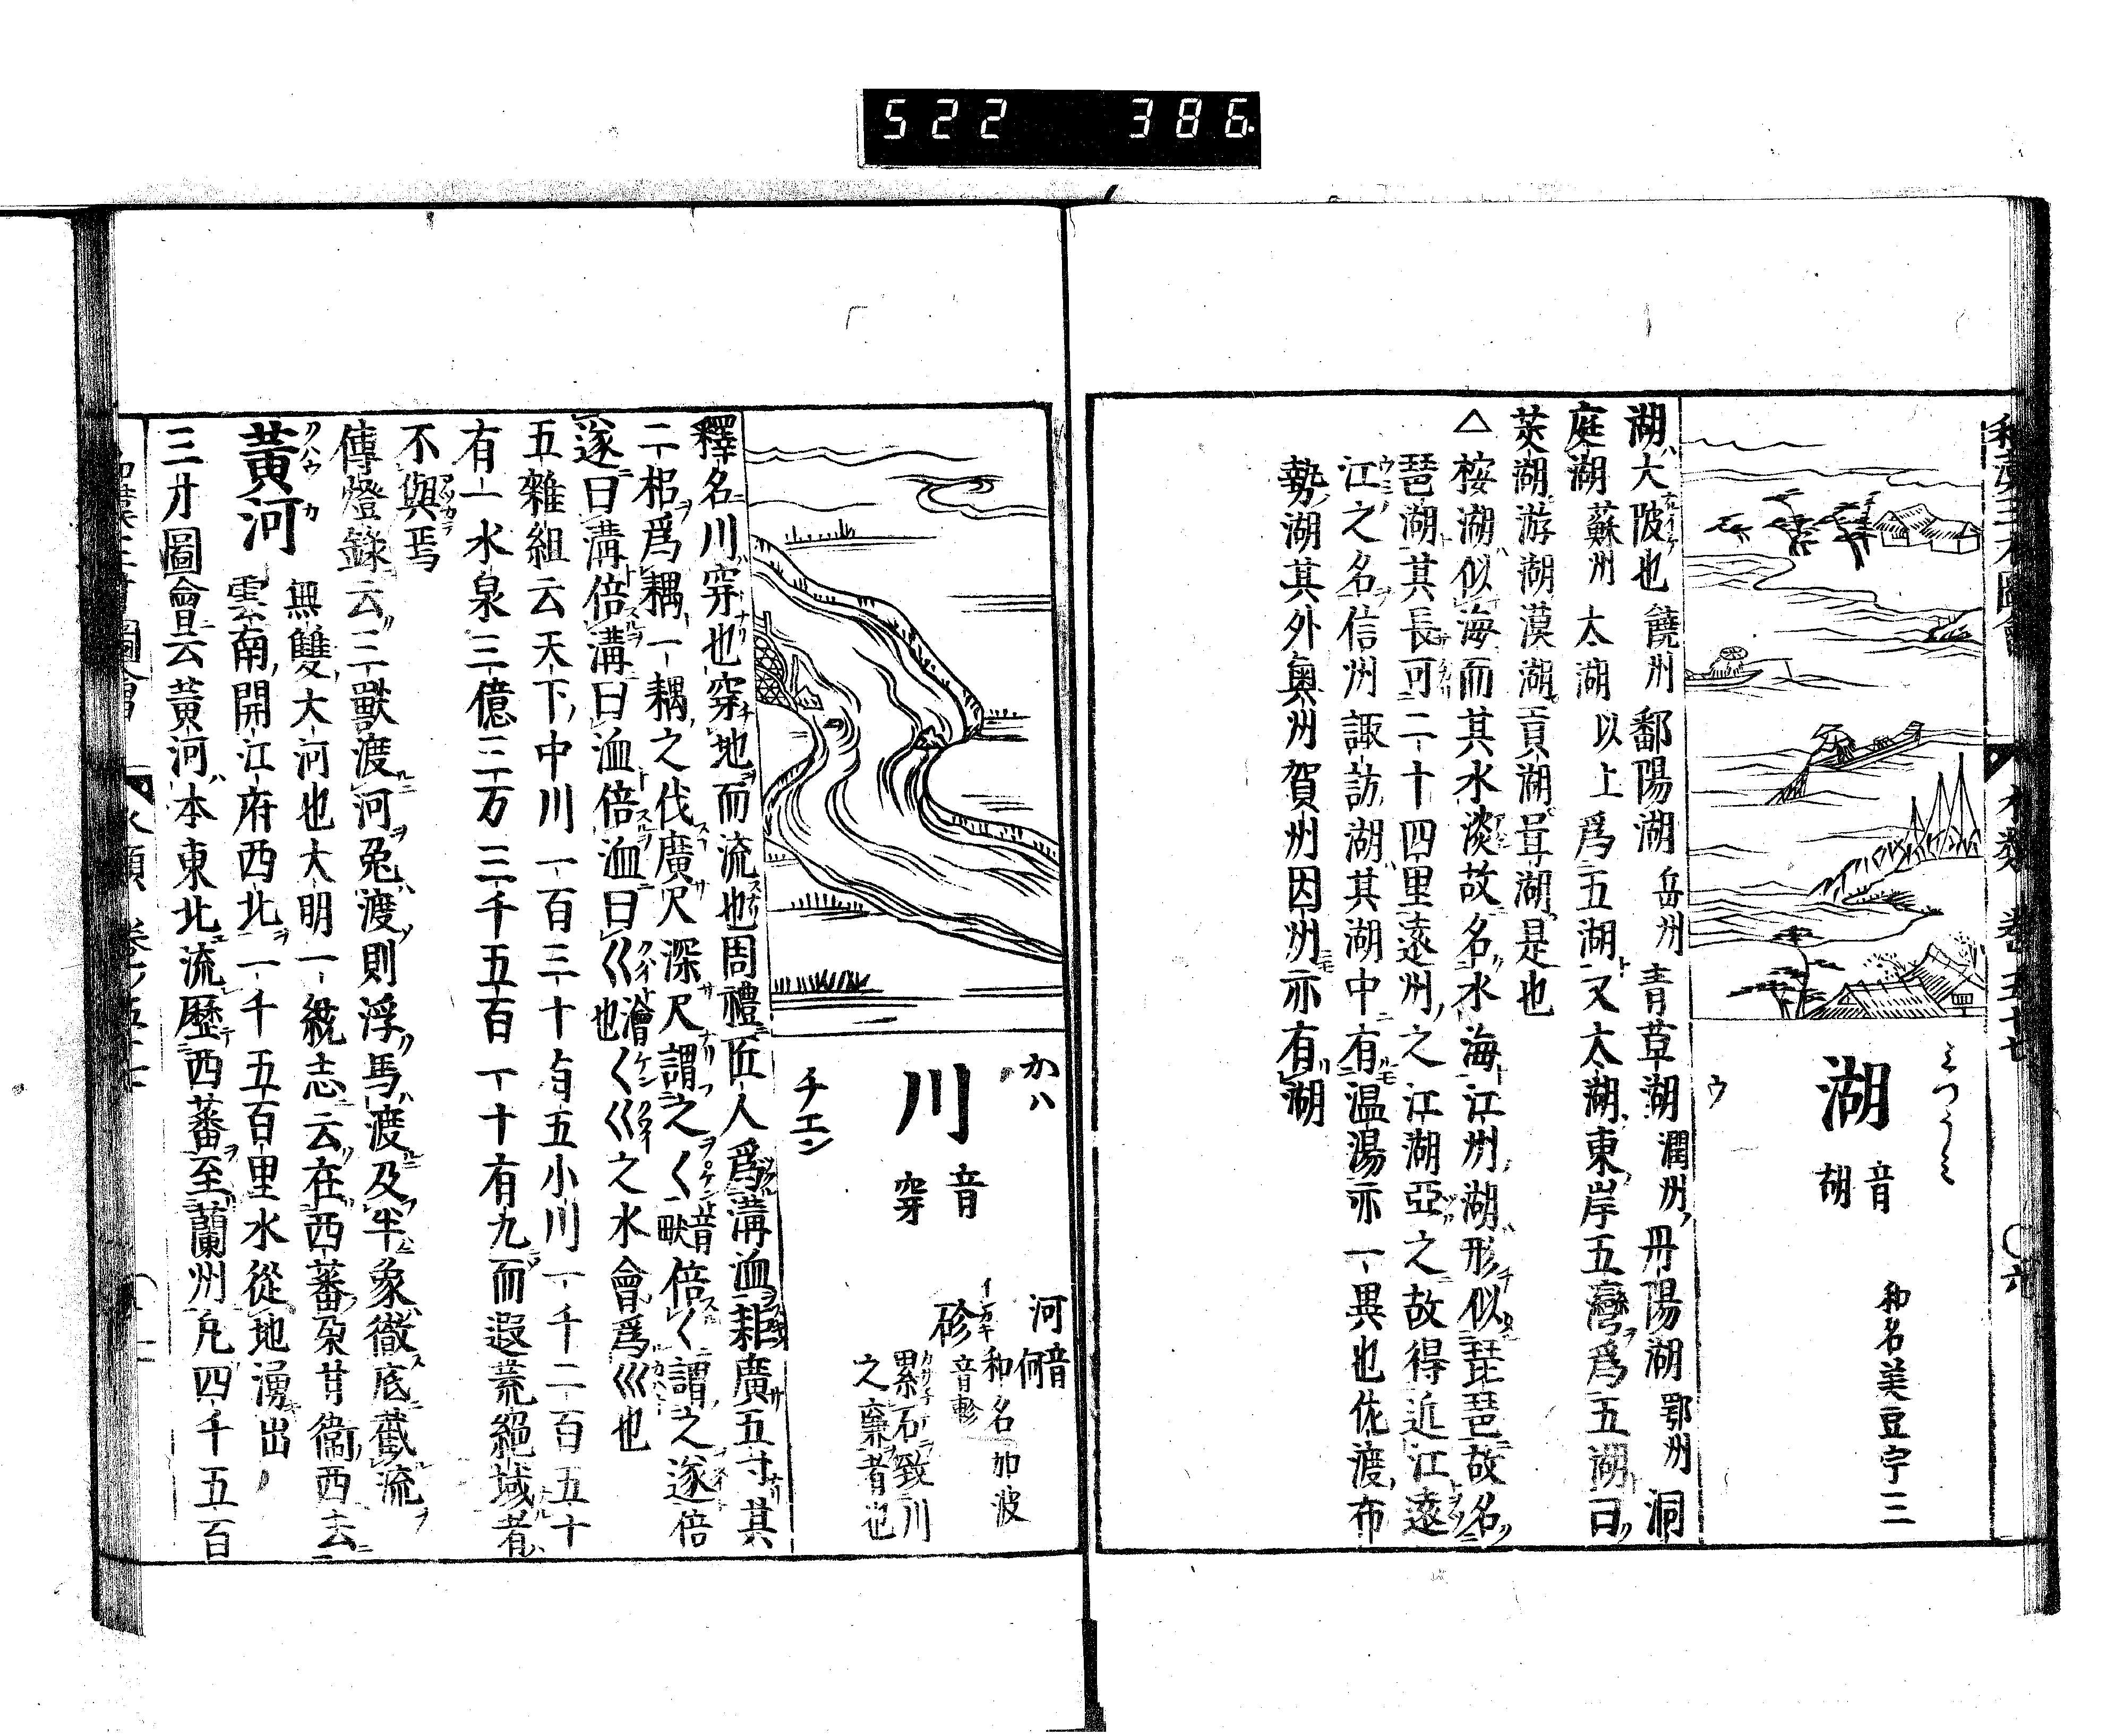 522 386.
和漢三才圖會 水類 卷五十七 ○六
みつうみ
湖 音胡 和名美豆宇三
ウ
湖大陂也饒州鄱陽湖岳州青草湖潤州丹陽湖鄂州洞
庭湖蘇州太湖以上爲五湖又太湖東岸五灣爲五湖曰
菱湖游湖漠湖貢湖胥湖是也
△桉湖似海而其水淡故名水海江州湖形似琵琶故名
琵琶湖其長可二十四里遠州之江湖亞之故得近江遠
江之名信州諏訪湖其湖中有温湯亦一異也佐渡布
勢湖其外奥州賀州因州亦有湖
かハ
川 音穿
チエン
河 音何
和名加波
イシガキ
砛 音軫
累石致川
之廉者也
釋名川穿也穿地而流也周禮匠人爲溝洫耜廣五寸其
二耜爲耦一耦之伐廣尺深尺謂之く音畎倍く謂之遂倍
遂曰溝倍溝曰洫倍洫曰巜澮也く巜之水會爲巛也
五雜組云天下中川一百三十有五小川一千二百五十
有一水泉三億三万三千五百一十有九而遐荒絕域者
不與焉
傳燈錄云三獸渡河兔渡則浮馬渡及半象徹底截流
クハウ カ
黃河 無雙大河也大明一統志云在西蕃朶甘衞西去
雲南開江府西北一千五百里水從地湧出
三才圖會云黃河本東北流歷西蕃至蘭州凡四千五百